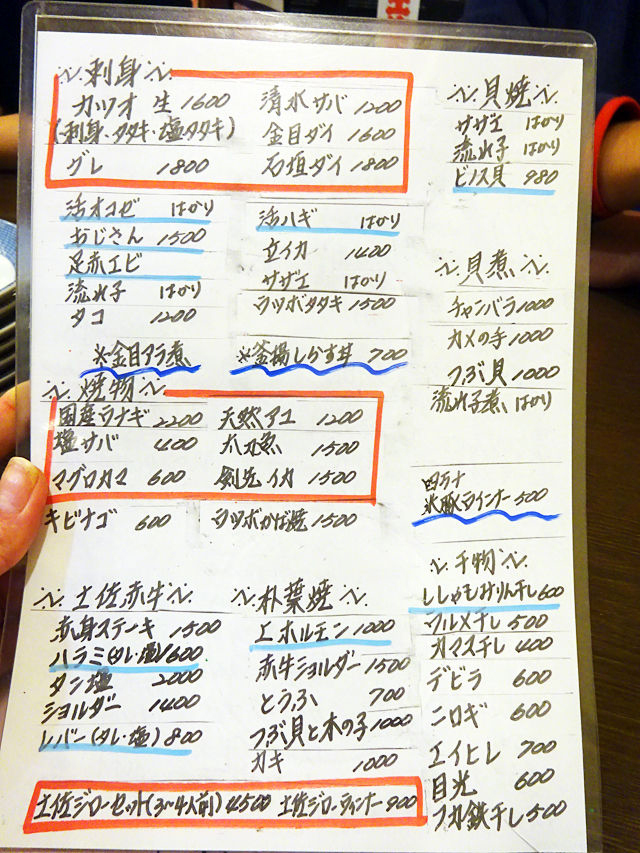 刺身
カツオ 生 1600
(刺身・タタキ・塩タタキ)
グレ 1800
清水サバ 1200
金目ダイ 1600
石垣ダイ 1800
活オコゼ はかり
おじさん 1500
足赤エビ
流れ子 はかり
タコ 1200
活ハギ はかり
立イカ 1400
サザエ はかり
ウツボタタキ 1500
※金目アラ煮
※釜揚しらす丼 700
焼物
国産ウナギ 2200
塩サバ 400
マグロカマ 600
キビナゴ 600
天然アユ 1200
太刀魚 1500
剣先イカ 1500
ウツボかば焼 1500
土佐赤牛
赤身ステーキ 1500
ハラミ(タレ・塩) 1600
タン塩 2000
ショルダー 1400
レバー(タレ・塩) 800
朴葉焼
エホルモン 1000
赤牛ショルダー 1500
とうふ 700
つぶ貝と木の子 1000
カキ 1000
土佐ジローセット(3〜4人前) 4500 土佐ジローウィンナー 900
貝焼
サザエ はかり
流れ子 はかり
ビノス貝 980
貝煮
チャンバラ 1000
カメの手 1000
つぶ貝 1000
流れ子煮 はかり
四万十
米豚ウインナー 500
干物
ししゃもみりん干し 600
ウルメ干し 500
カマス干し 400
デビラ 600
ニロギ 600
エイヒレ 700
目光 600
フカ鉄干し 500